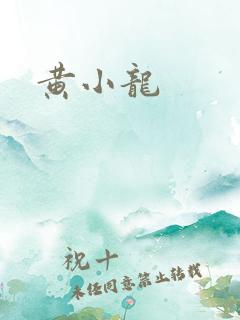 黄小龍
祝十
未经同意禁止转载